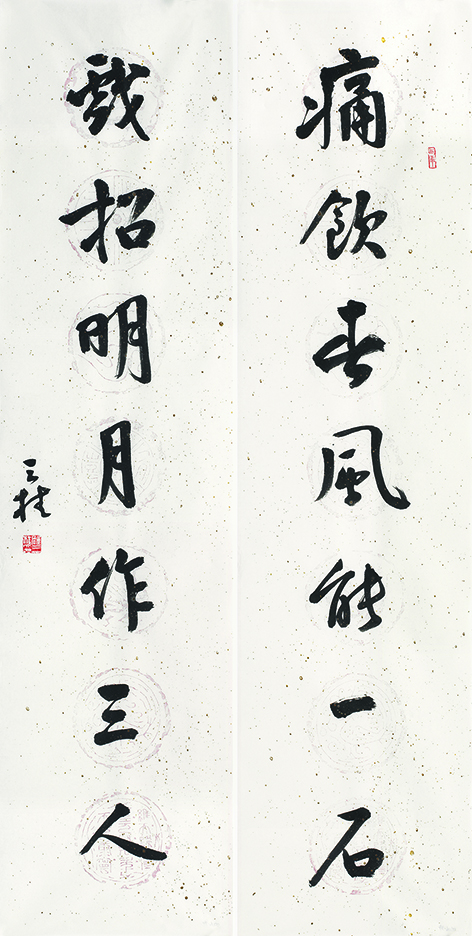 痛飲春風能一石
戲招明月作三人